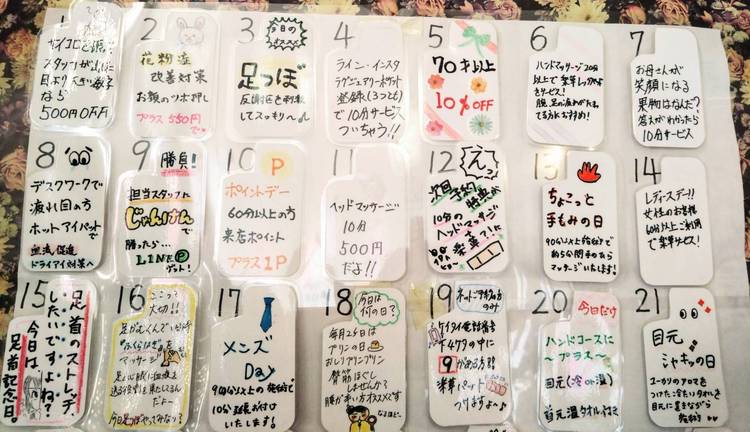 1
サイコロを振って
スタッフが出した
目より大きい数字
なら
500円OFF
2
花粉症
改善対策
お顔のツボ押し
プラス550円
で
3
今日の
オススメ
足つぼ
反射区を刺激
してスッキリ〜
4
ライン・インスタ
ラグジュアリーポケット
登録(3つとも)
で10分サービス
ついちゃう!!
5
70才以上
10%OFF
6
ハンドマッサージ20分
以上で
サービス!
7
お母さんが
笑顔になる
果物はなんだ?
答えがわかったら
10分サービス
8
デスクワークで
疲れ目の方
ホットアイパットで
血流促進
ドライアイ対策へ
9
勝負!
担当スタッフに
じゃんけんで
勝ったら…
LINE P
ゲット!
10 P
ポイントデー
60分以上の方
来店ポイント
プラス1P
11
ヘッドマッサージ
10分
500円
だよ!!
12
えっ
次回予約
特典が
10分の
ヘッドマッサージ
13
ちょこっと
手もみの日
90分以上施術で
約5分間手のひら
マッサージいたします!
14
レディースデー!!
女性のお客様
60分以上ご利用
で楽華サービス!
15
足首のストレッチ
したいですよね?
今日は、
足首記念日。
16
ここって
大切!!
足がむくんでいる
"ふくらはぎ"を
マッサージ
17
メンズ
Day
90分以上の施術で
10分延長が付け
いたします!
18
今日は
何の日?
毎月25日は
プリンの日
おしりプリンプリン
臀筋ほぐし
しませんか?
腰が辛い方オススメです
なるほど、
19
ネット予約の方
のみ
ケイタイ電話番号
下4ケタの中に
9がある方
楽華パット
つけますよ〜
20
今日だけ
ハンドコースに
〜プラス〜
目元(冷or温)
首元温タオル
21
目元
シャキッの日
ユーカリのアロマを
つけた冷たいタオルを
目元に置きながら
施術